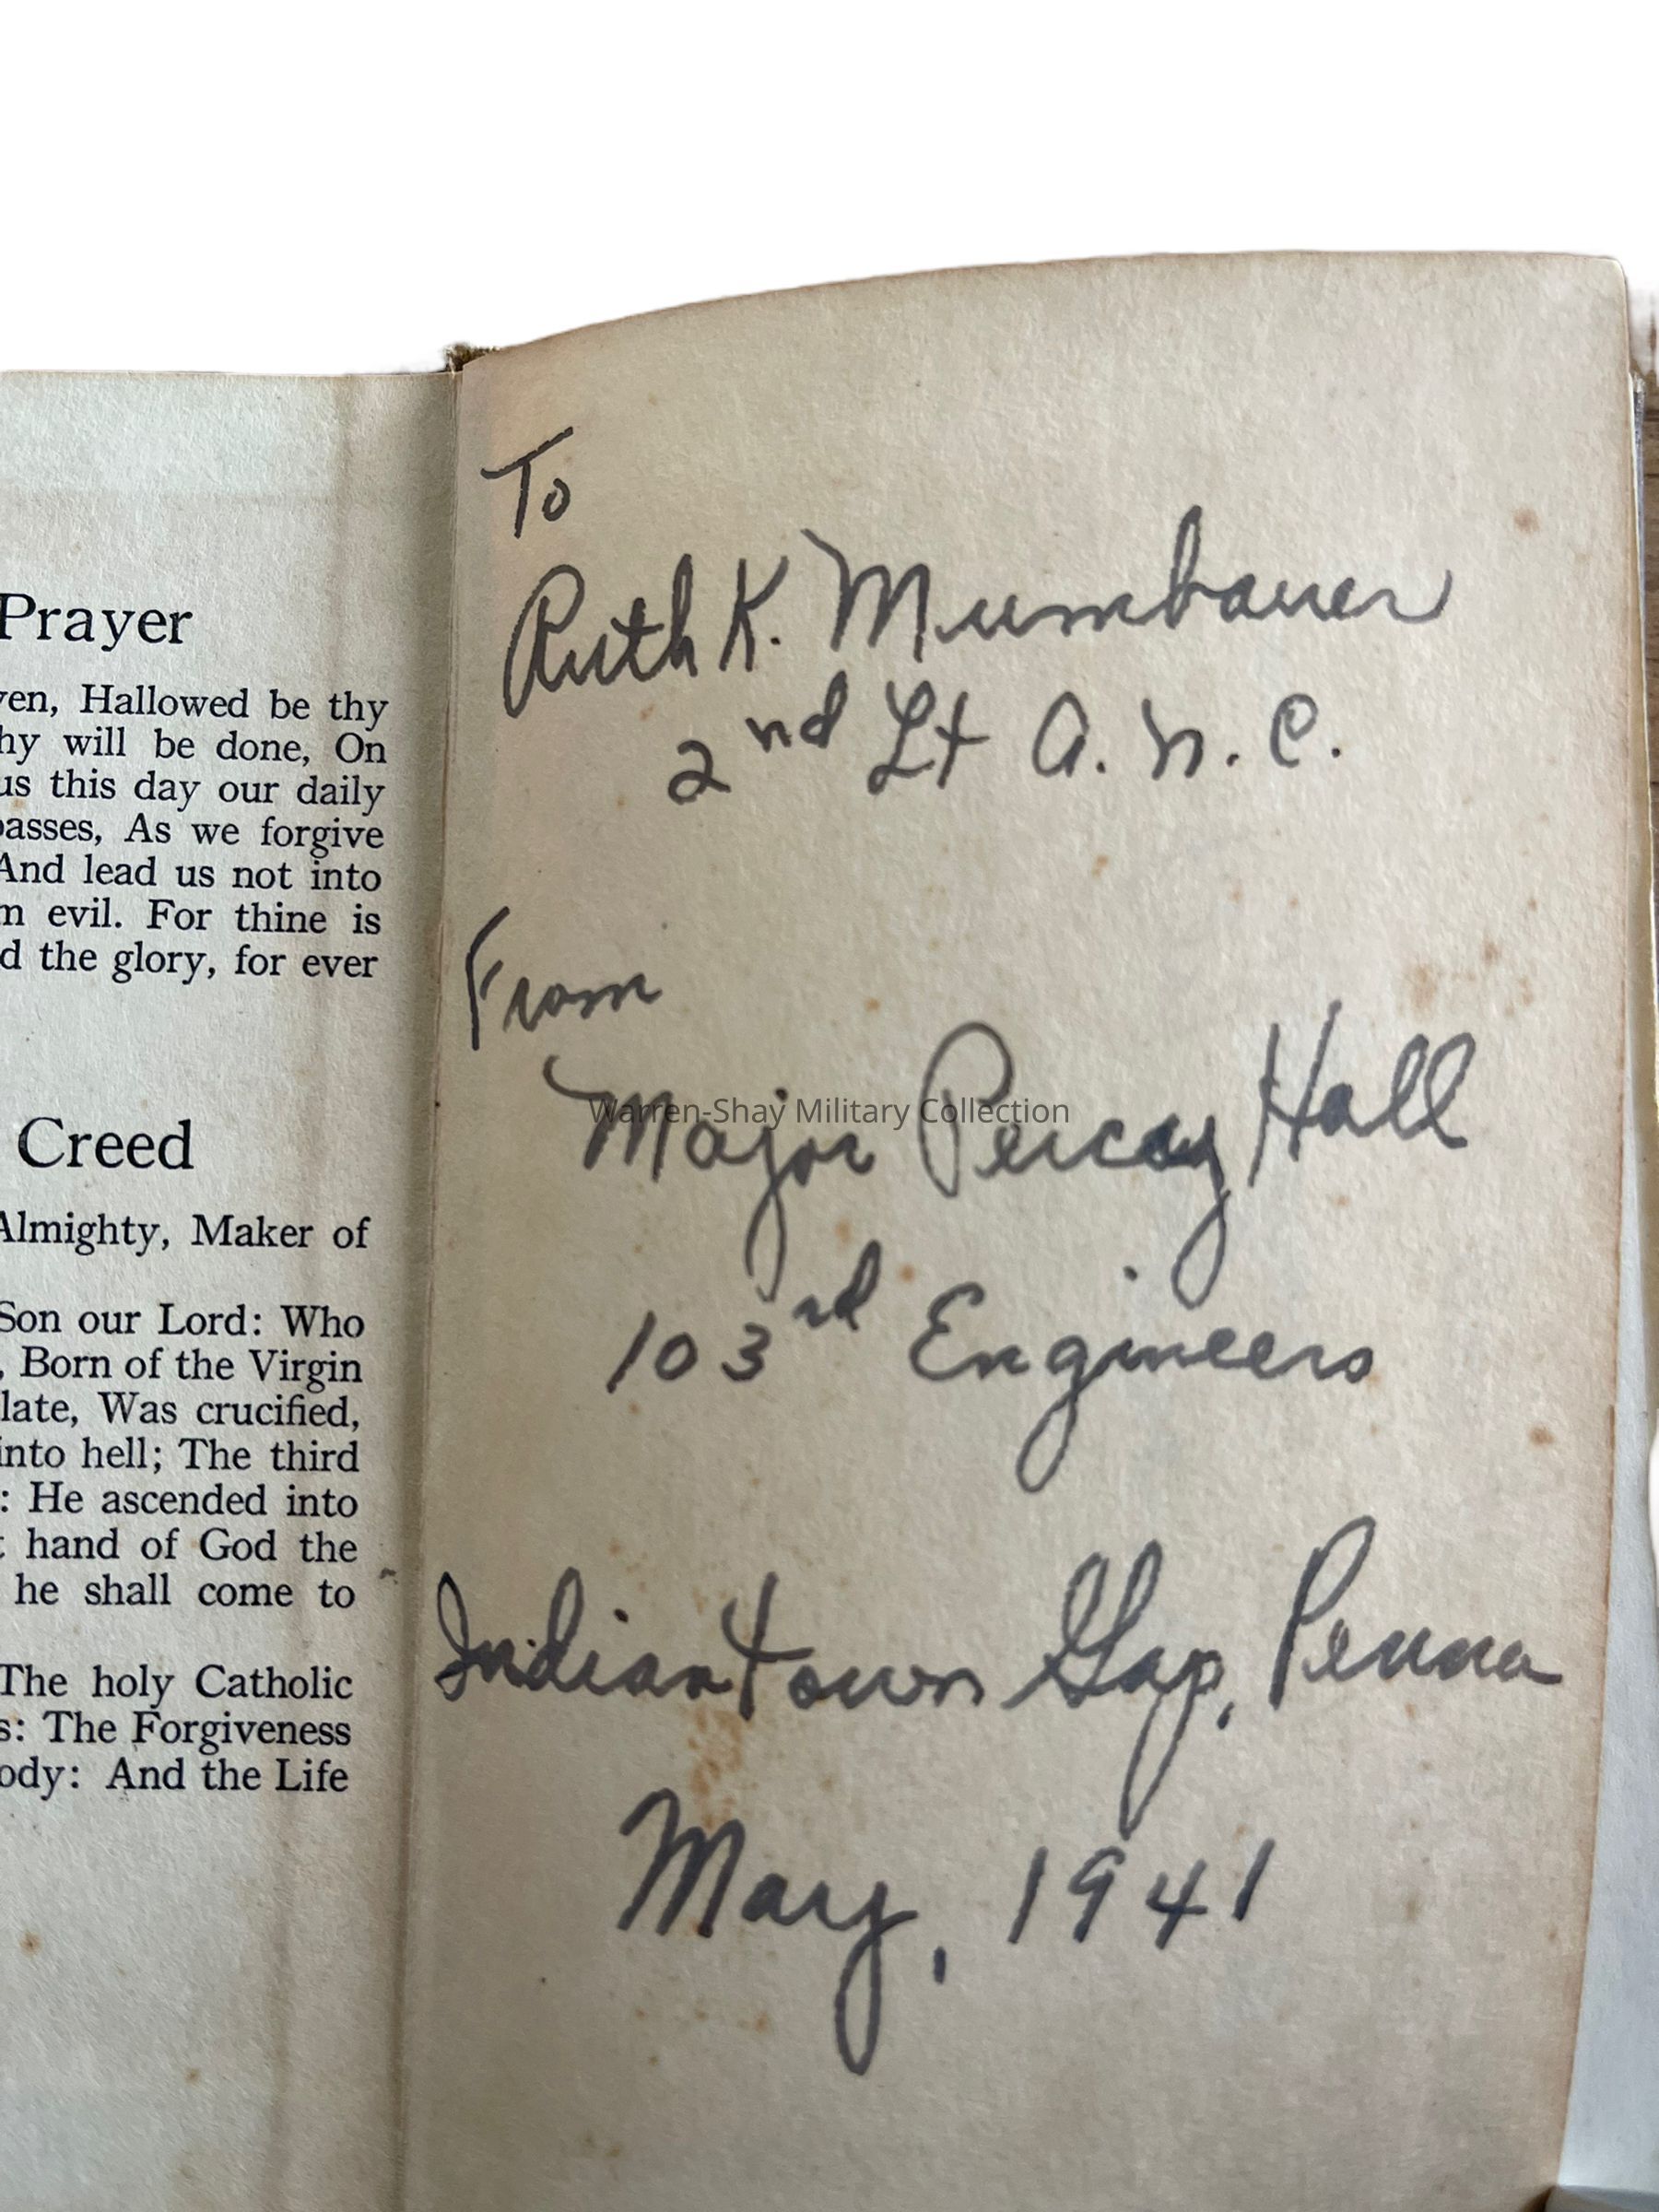 Prayer
ven, Hallowed be thy
hy will be done, On
us this day our daily
passes, As we forgive
And lead us not into
m evil. For thine is
d the glory, for ever
Creed
Almighty, Maker of
Son our Lord: Who
, Born of the Virgin
late, Was crucified,
into hell; The third
: He ascended into
t hand of God the
he shall come to
The holy Catholic
s: The Forgiveness
ody: And the Life
To
Ruth K. Mumbauer
2nd Lt A.N.C.
From
Major Percy Hall
Warren-Shay Military Collection
103rd Engineers
Indiantown Gap, Penna
May, 1941